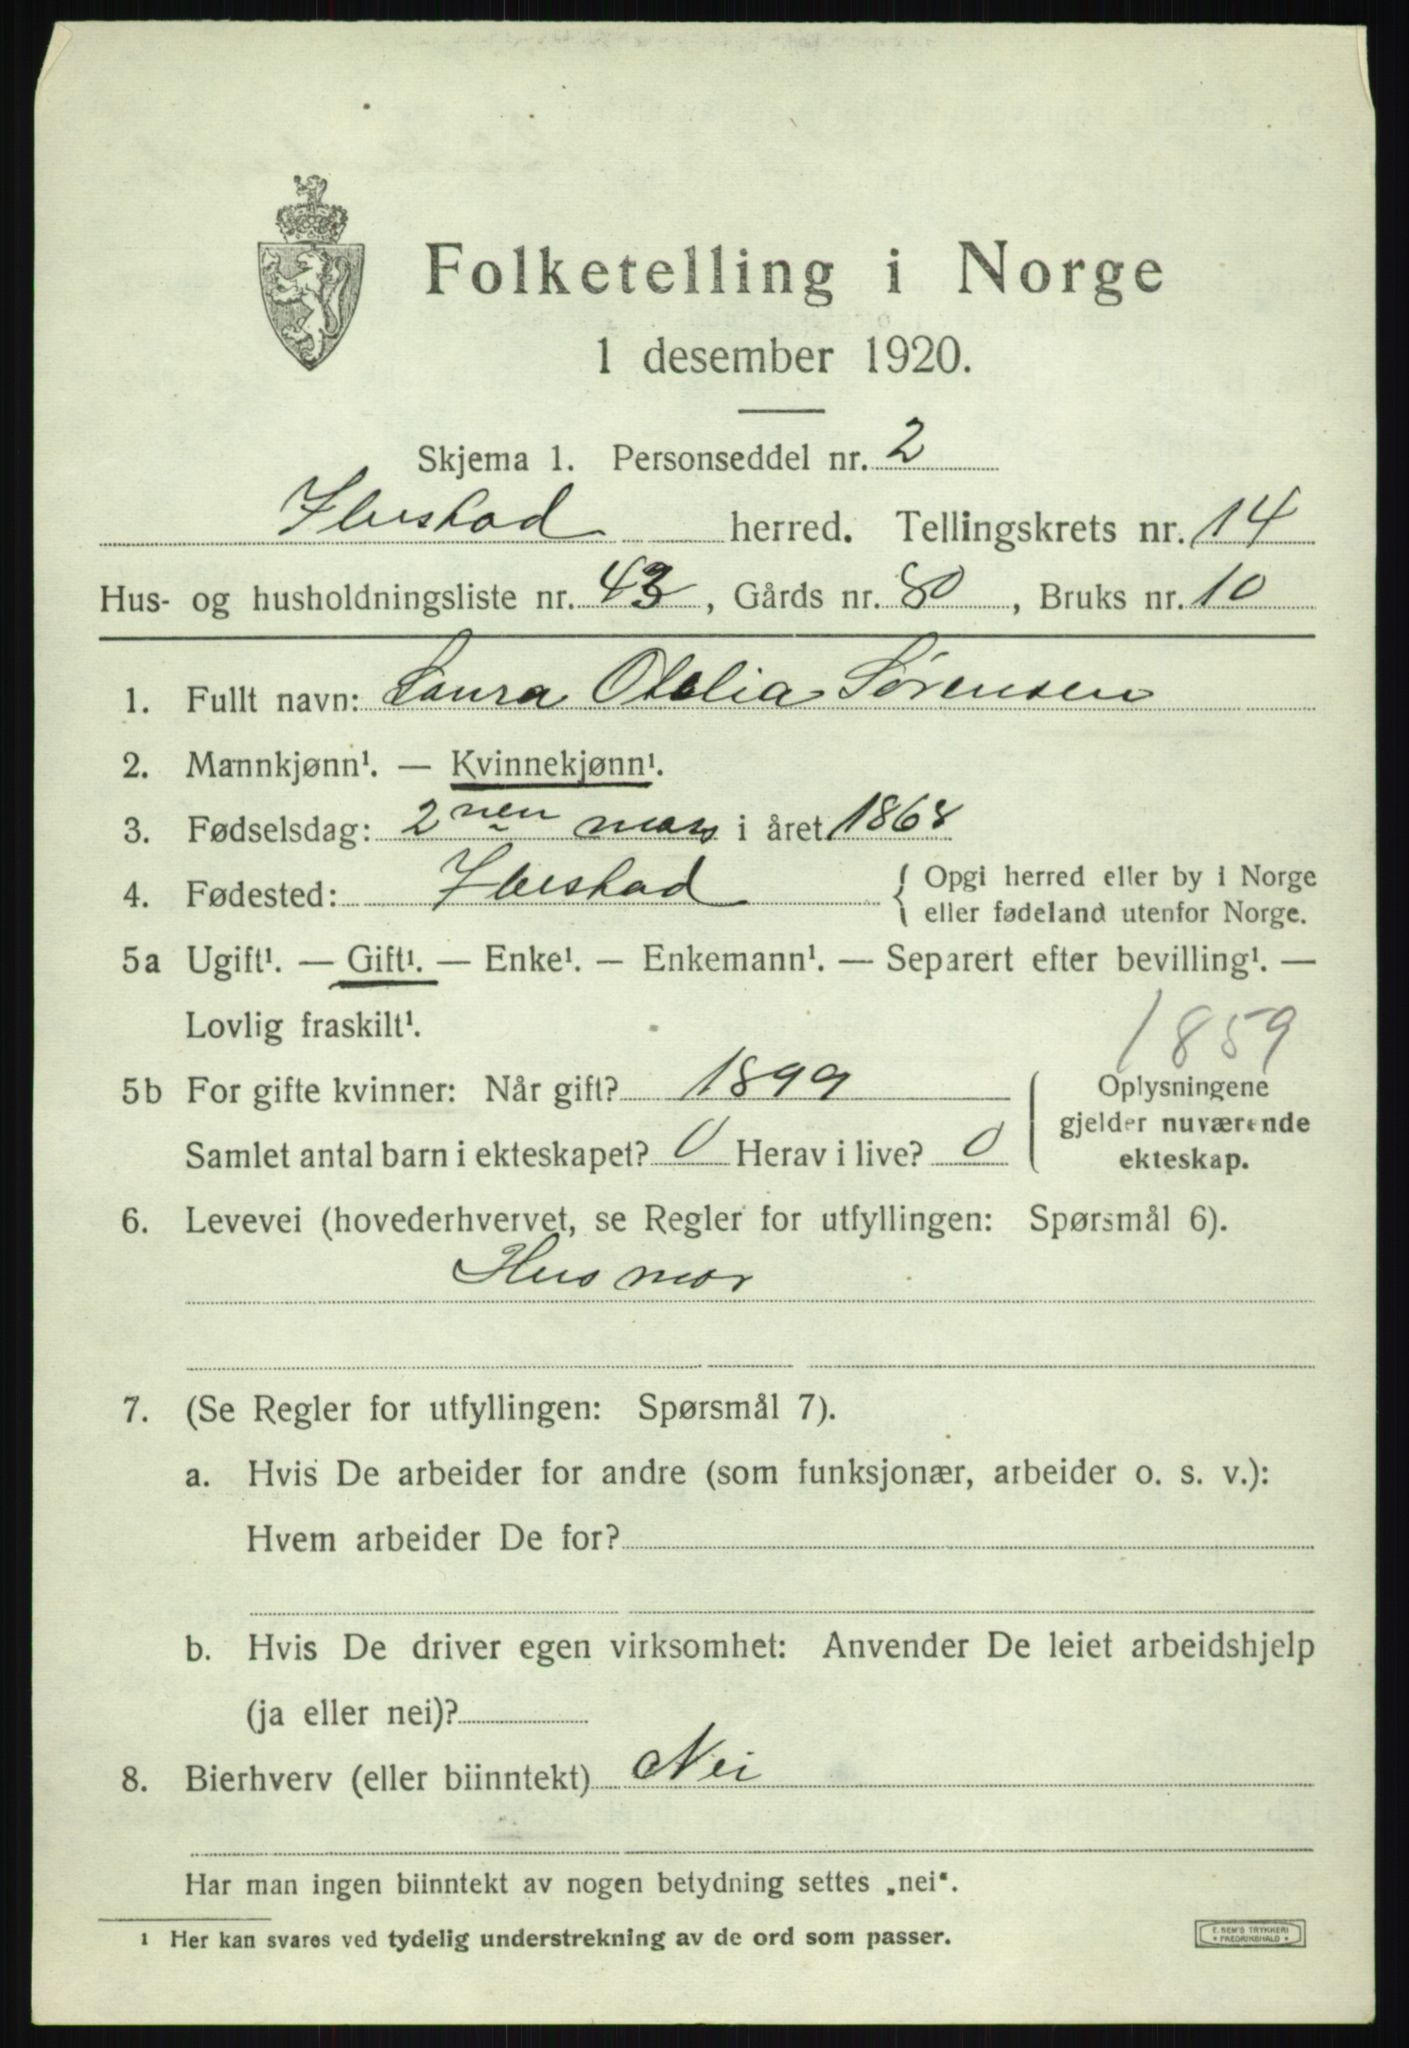 Folketelling i Norge
1 desember 1920.
Skjema 1. Personseddel nr. 2
Ibestad herred. Tellingskrets nr. 14
Hus- og husholdningsliste nr. 43, Gårds nr. 80, Bruks nr. 10
1. Fullt navn: Laura Otelia Sørensen
2. Mannkjønn¹. — Kvinnekjønn¹.
3. Fødselsdag: 2nen mars i året 1868
4. Fødested: Ibestad { Opgi herred eller by i Norge
eller fødeland utenfor Norge.
5a Ugift¹. — Gift¹. — Enke¹. — Enkemann¹. — Separert efter bevilling¹. —
Lovlig fraskilt¹.
1859
5b For gifte kvinner: Når gift? 1899
Samlet antal barn i ekteskapet? 0 Herav i live? 0
Oplysningene
gjelder nuværende
ekteskap.
6. Levevei (hovederhvervet, se Regler for utfyllingen: Spørsmål 6).
Husmor
7. (Se Regler for utfyllingen: Spørsmål 7).
a. Hvis De arbeider for andre (som funksjonær, arbeider o. s. v.):
Hvem arbeider De for?
b. Hvis De driver egen virksomhet: Anvender De leiet arbeidshjelp
(ja eller nei)?
8. Bierhverv (eller biinntekt) Nei
Har man ingen biinntekt av nogen betydning settes „nei“.
¹ Her kan svares ved tydelig understrekning av de ord som passer.
E. SEM'S TRYKKERI
* FREDRIKSHALD *